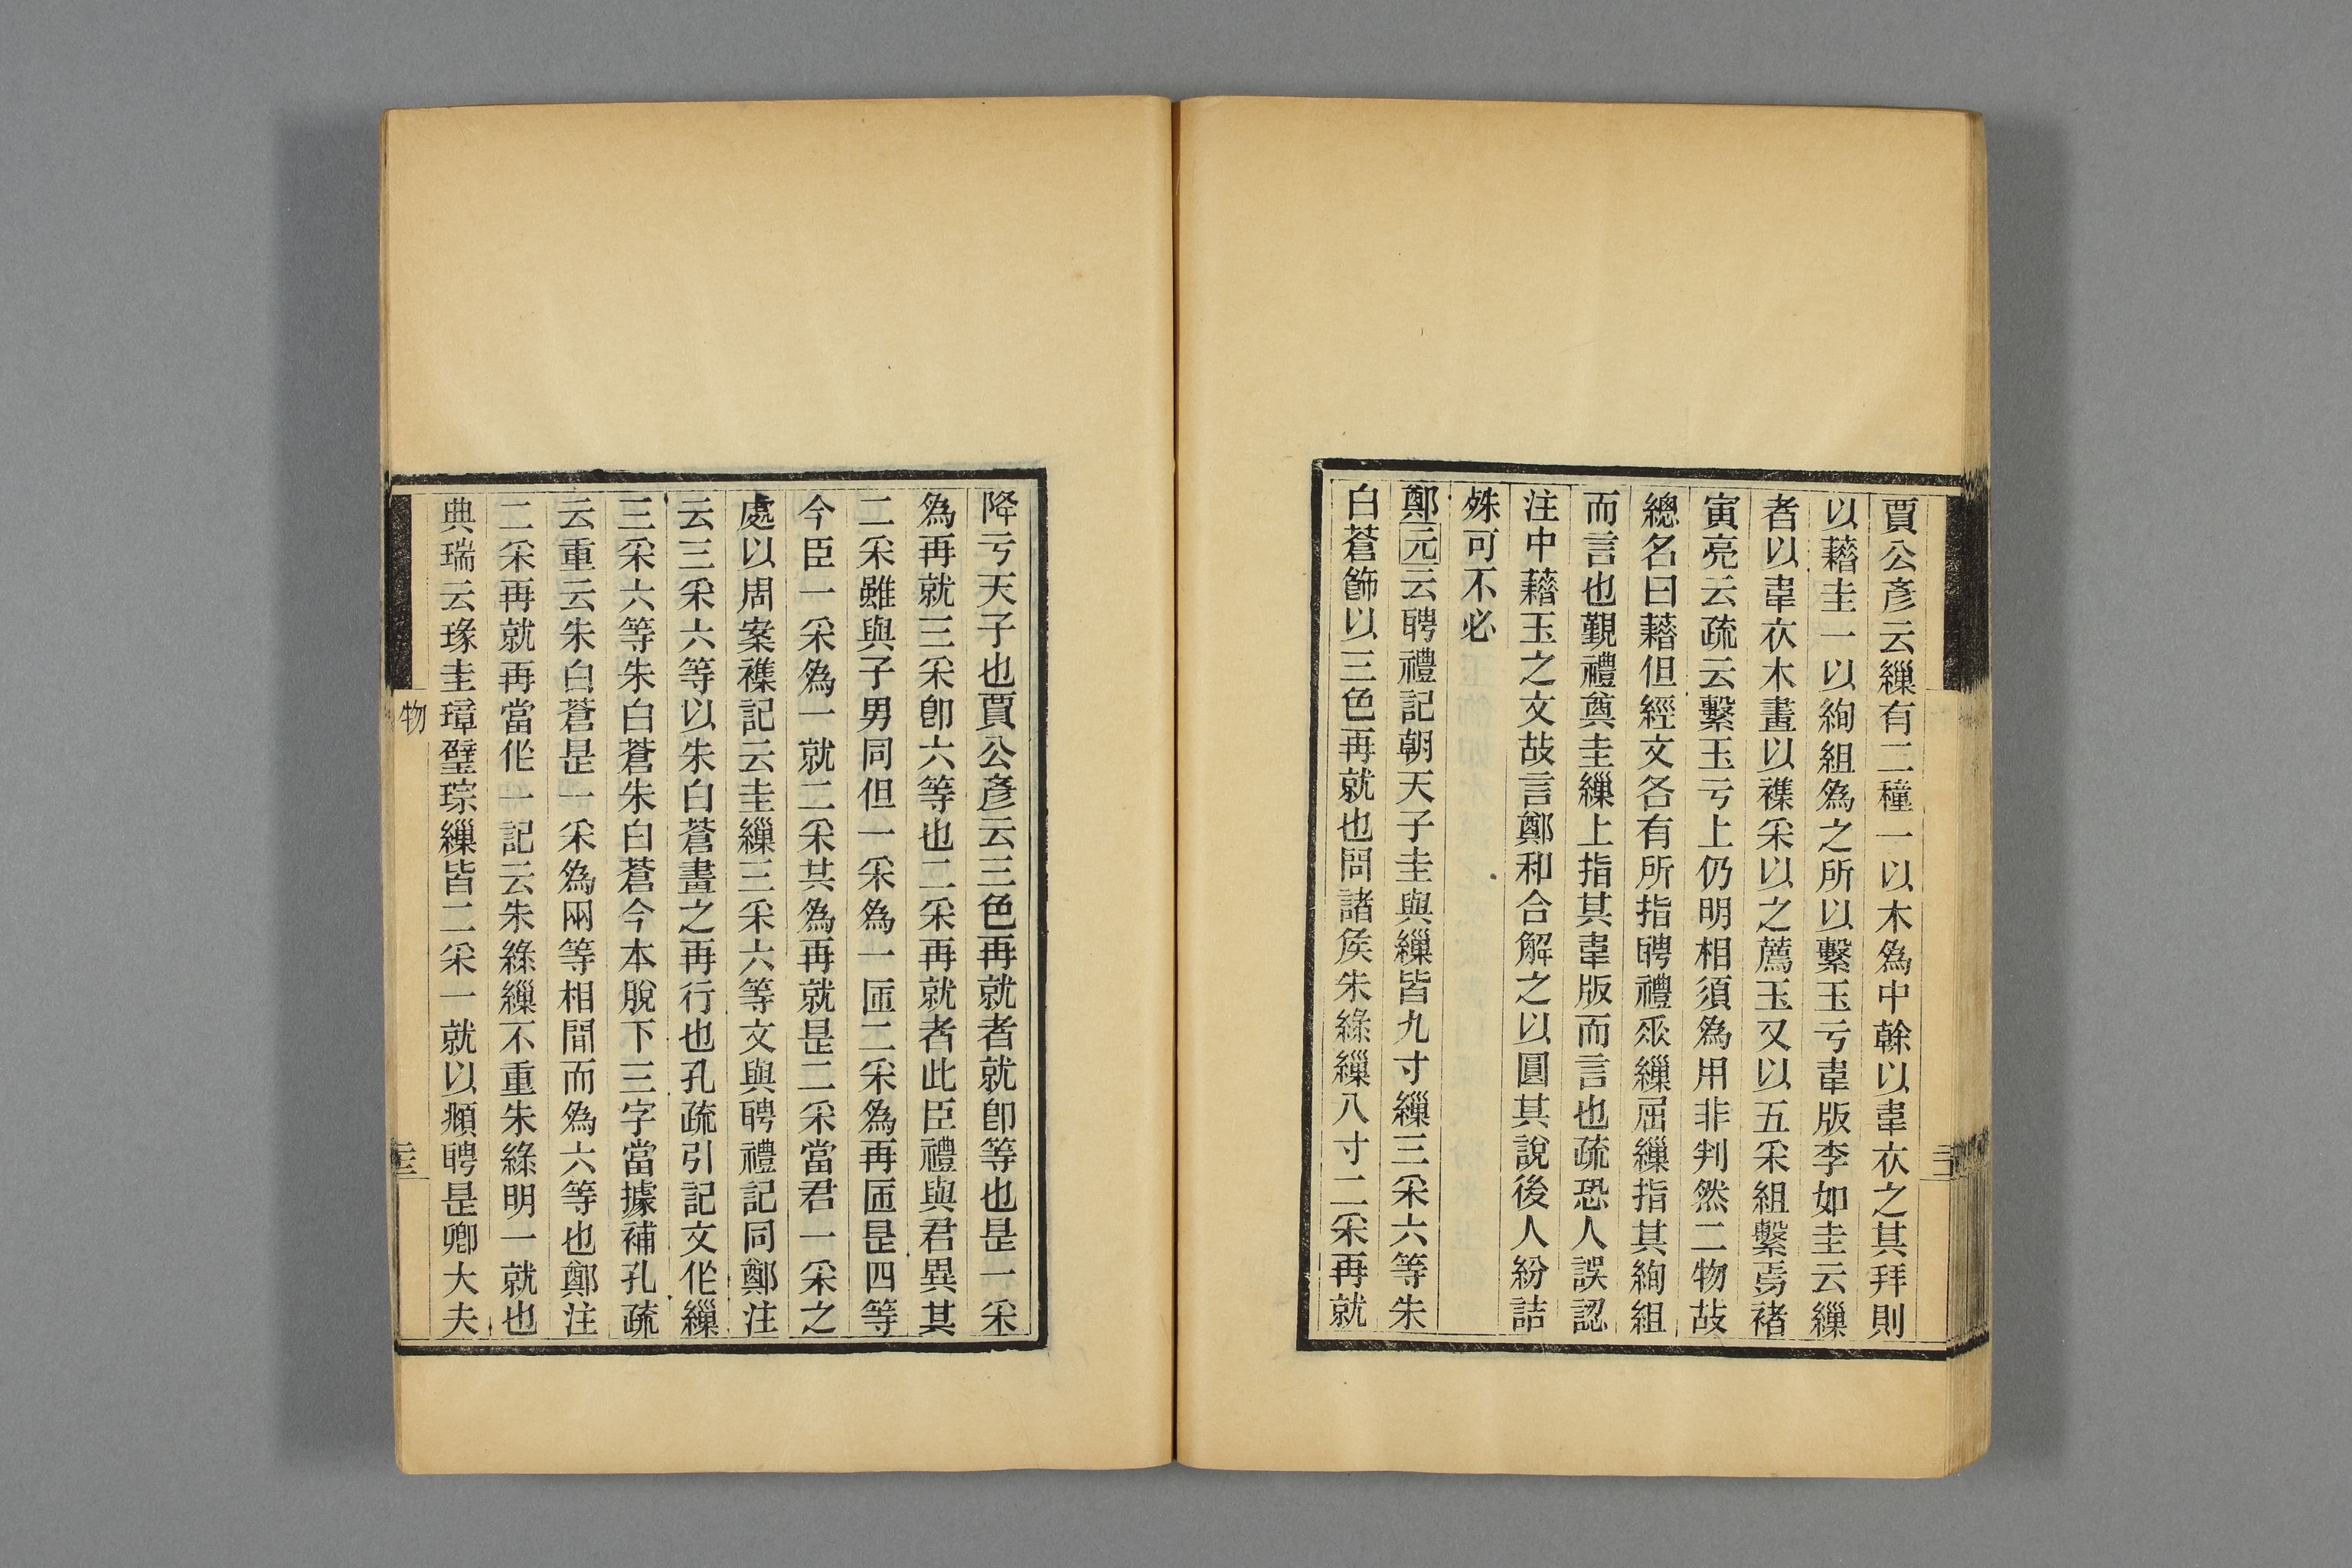 賈公彥云繅有二種一以木爲中榦以韋衣之其拜則
以藉圭一以絢組爲之所以繫玉亏韋版李如圭云繅
者以韋衣木畫以襍采以之薦玉又以五采組繫焉褚
寅亮云疏云繫玉亏上仍明相須爲用非判然二物故
總名曰藉但經文各有所指聘禮烝繅屈繅指其絢組
而言也覲禮奠圭繅上指其韋版而言也疏恐人誤認
注中藉玉之文故言鄭和合解之以圓其說後人紛詰
殊可不必
鄭元云聘禮記朝天子圭與繅皆九寸繅三采六等朱
白蒼飾以三色再就也問諸矦朱綠繅八寸二采再就
降亏天子也賈公彥云三色再就者就卽等也是一采
爲再就三采卽六等也二采再就者此臣禮與君異其
二采雖與子男同但一采爲一匝二采爲再匝是四等
今臣一采爲一就二采其爲再就是二采當君一采之
處以周案襍記云圭繅三采六等文與聘禮記同鄭注
云三采六等以朱白蒼畫之再行也孔疏引記文作繅
三采六等朱白蒼朱白蒼今本脫下三字當據補孔疏
云重云朱白蒼是一采爲兩等相間而爲六等也鄭注
二采再就再當作一記云朱綠繅不重朱綠明一就也
典瑞云瑑圭璋璧琮繅皆二采一就以頫聘是卿大夫
物